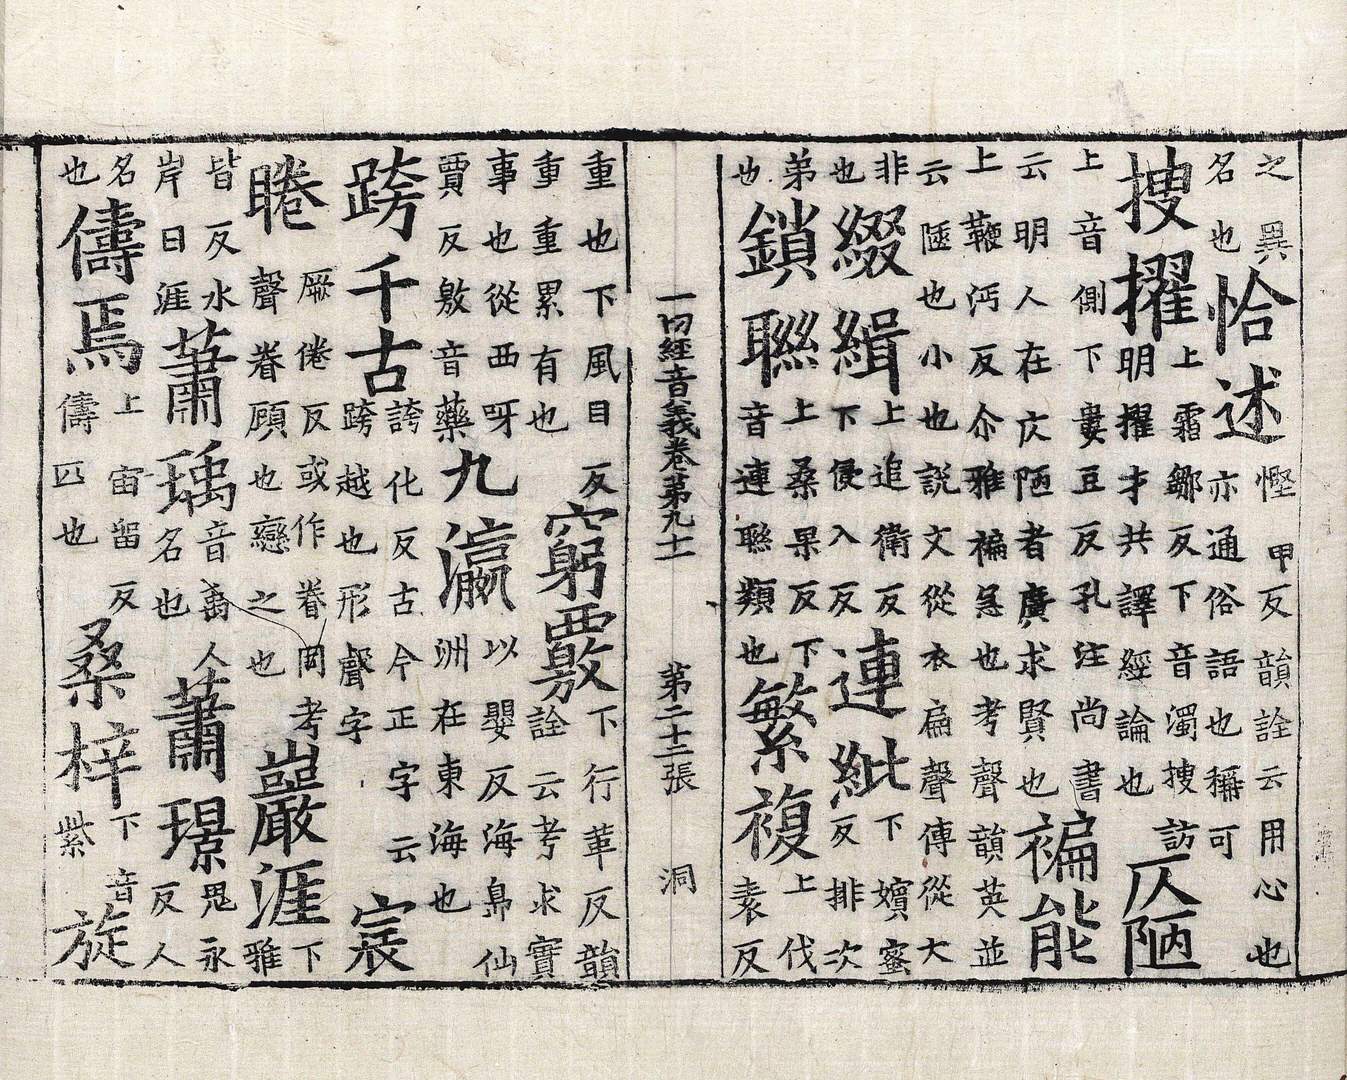 之異名也恰述慳甲反韻詮云用心也亦通俗語也稱可
搜擢上霜鄒反下音濁搜訪明擢才共譯經論也仄陋
上音側下婁豆反孔注尚書云明人在仄陋者廣求賢也褊能
上鞭沔反尒雅褊急也考聲韻英並云陿也小也說文從衣扁聲傳從大
非也綴緝上追衛反下侵入反連紕下嬪蜜反排次
弟也鎖聯上桑果反下音連聯類也繁複上伐袤反
一切經音義卷第九十一 第二十二張 洞
重也下風目反重重累有也窮覈下行革反韻詮云考求實
事也從西呀賈反敫音藥九瀛以嬰反海島仙洲在東海也
跨千古誇化反古今正字云跨越也形聲字宸
睠厥倦反或作眷同考聲眷顧也戀之也巖涯下雅
皆反水岸曰涯蕭瑀音禹人名也蕭璟鬼永反人
名也儔焉上宙留反儔匹也桑梓下音紫旋